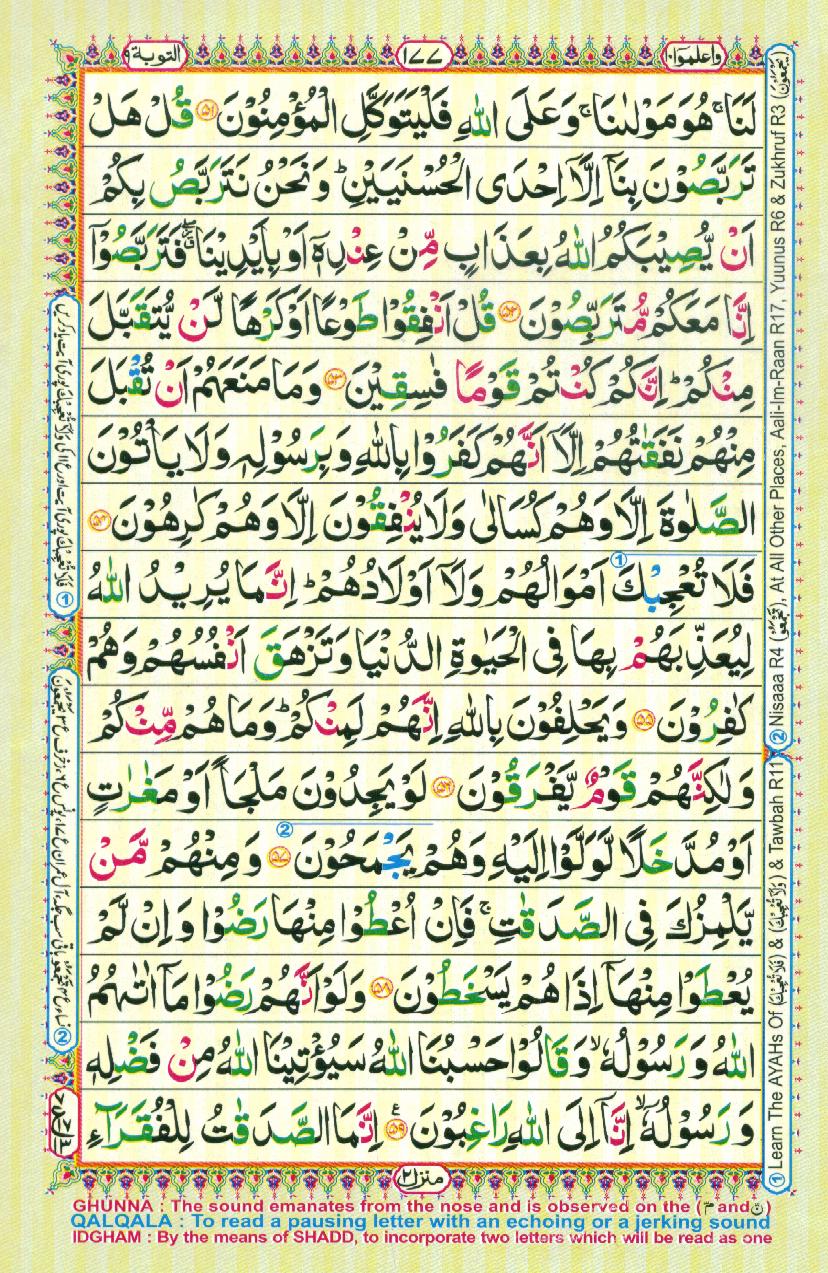 واعلموا ١٠
١٧٧
التوبة ٩
لَنَا ۚ هُوَ مَوْلٰىنَا ۚ وَعَلَى اللّٰهِ فَلْيَتَوَكَّلِ الْمُؤْمِنُوْنَ ﴿٥١﴾ قُلْ هَلْ
تَرَبَّصُوْنَ بِنَاۤ اِلَّاۤ اِحْدَى الْحُسْنَيَيْنِ ؕ وَنَحْنُ نَتَرَبَّصُ بِكُمْ
اَنْ يُّصِيْبَكُمُ اللّٰهُ بِعَذَابٍ مِّنْ عِنْدِهٖۤ اَوْ بِاَيْدِيْنَا ۖؗ فَتَرَبَّصُوْۤا
اِنَّا مَعَكُمْ مُّتَرَبِّصُوْنَ ﴿٥٢﴾ قُلْ اَنْفِقُوْا طَوْعًا اَوْ كَرْهًا لَّنْ يُّتَقَبَّلَ
مِنْكُمْ ؕ اِنَّكُمْ كُنْتُمْ قَوْمًا فٰسِقِيْنَ ﴿٥٣﴾ وَمَا مَنَعَهُمْ اَنْ تُقْبَلَ
مِنْهُمْ نَفَقٰتُهُمْ اِلَّاۤ اَنَّهُمْ كَفَرُوْا بِاللّٰهِ وَبِرَسُوْلِهٖ وَلَا يَاْتُوْنَ
الصَّلٰوةَ اِلَّا وَهُمْ كُسَالٰى وَلَا يُنْفِقُوْنَ اِلَّا وَهُمْ كٰرِهُوْنَ ﴿٥٤﴾
فَلَا تُعْجِبْكَ اَمْوَالُهُمْ وَلَاۤ اَوْلَادُهُمْ ؕ اِنَّمَا يُرِيْدُ اللّٰهُ
لِيُعَذِّبَهُمْ بِهَا فِى الْحَيٰوةِ الدُّنْيَا وَتَزْهَقَ اَنْفُسُهُمْ وَهُمْ
كٰفِرُوْنَ ﴿٥٥﴾ وَيَحْلِفُوْنَ بِاللّٰهِ اِنَّهُمْ لَمِنْكُمْ ؕ وَمَا هُمْ مِّنْكُمْ
وَلٰكِنَّهُمْ قَوْمٌ يَّفْرَقُوْنَ ﴿٥٦﴾ لَوْ يَجِدُوْنَ مَلْجَاً اَوْ مَغٰرٰتٍ
اَوْ مُدَّخَلًا لَّوَلَّوْا اِلَيْهِ وَهُمْ يَجْمَحُوْنَ ﴿٥٧﴾ وَمِنْهُمْ مَّنْ
يَّلْمِزُكَ فِى الصَّدَقٰتِ ۚ فَاِنْ اُعْطُوْا مِنْهَا رَضُوْا وَاِنْ لَّمْ
يُعْطَوْا مِنْهَاۤ اِذَا هُمْ يَسْخَطُوْنَ ﴿٥٨﴾ وَلَوْ اَنَّهُمْ رَضُوْا مَاۤ اٰتٰىهُمُ
اللّٰهُ وَرَسُوْلُهٗ ۙ وَقَالُوْا حَسْبُنَا اللّٰهُ سَيُؤْتِيْنَا اللّٰهُ مِنْ فَضْلِهٖ
وَرَسُوْلُهٗۤ ۙ اِنَّاۤ اِلَى اللّٰهِ رٰغِبُوْنَ ﴿٥٩﴾ اِنَّمَا الصَّدَقٰتُ لِلْفُقَرَآءِ
منزل ٢
① Learn The AYAHs Of (فَلَا تُعْجِبْكَ) & (وَلَا تُعْجِبْكَ) & Tawbah R11
② Nisaaa R4 At All Other Places, Aali-Im-Raan R17, Yuunus R6 & Zukhruf R3 (يَجْمَعُوْنَ)
GHUNNA : The sound emanates from the nose and is observed on the (مّ and نّ)
QALQALA : To read a pausing letter with an echoing or a jerking sound
IDGHAM : By the means of SHADD, to incorporate two letters which will be read as one